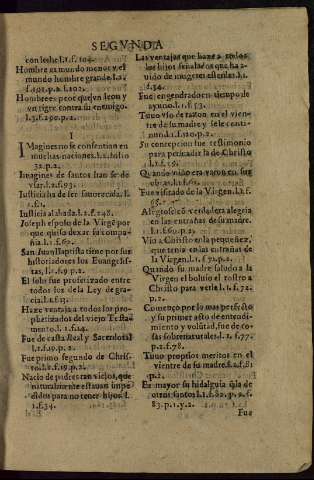 SEGVNDA
con leche l.1.f.104.
Hombre es mundo menor y el
mundo hombre grande. l.2.
f.101.p.2. l.102.
Hombre es peor que vn leon y
vn tigre contra su enemigo.
l.3.f.290.p.2.
I
IMagines no se consentian en
muchas naciones. l.2. folio
32.p.2.
Imagines de santos han se de
vsar. l.2.f.93.
Iusticia ha de ser fauorecida. l.
Iusticia alabada. l.2.f.248.
Ioseph esposo de la Virgē por
que quiso dexar su compa-
ñia. l.1.f.62.
San Iuan Baptista tiene por sus
historiadores los Euangelis-
tas, l.1.f.9.p.2.
El solo fue profetizado entre
todos los de la Ley de gra-
cia. l.1.f.13.
Haze ventaja a todos los pro-
phetizados del viejo Testa-
mento. l.1.f.14.
Fue de casta Real y Sacerdotal
l.1.f.19.p.2.
Fue primo segundo de Chris-
to. l.1.f.19.p.2.
Nacio de padres tan viejos, que
naturalmente estauan impe
didos para no tener hijos. l.
1.f.34.
Las ventajas que haze a todos
los hijos señalados que ha a-
uido de mugeres esteriles. l.1.
f.34.
Fue engendrado en tiempo de
ayuno. l.1.f.53.
Tuuo vso de razon en el vien-
tre de su madre y sele conti-
nuò. l.1.f.120.p.2.
Su concepcion fue testimonio
para persuadir la de Christo
l.1.f.59.
Quando vido era varon en las
Fue visitado de la Virgen. l.1.f.
65.
Alegrose cō verdadera alegria
en las entrañas de su madre.
l.1.f.60.p.2.
Vio a Christo en la pequeñez,
que tenia en las entrañas de
la Virgen. l.1.f.72.p.2.
Quando su madre saludo a la
Virgen el boluio el rostro a
Christo para verle l.1.f.72.
p.2.
Començo por lo mas perfecto
y su primer acto de entendi-
miento y volūtad, fue de co-
sas sobrenaturales. l.1.f.77.
p.2.f.78.
Tuuo propios meritos en el
vientre de su madre. l.1.f.81
p.2.
Es mayor su hidalguia q̄ la de
otros santos l.1.f.82.p.2.f.
83.p.1.y.2.
Fue